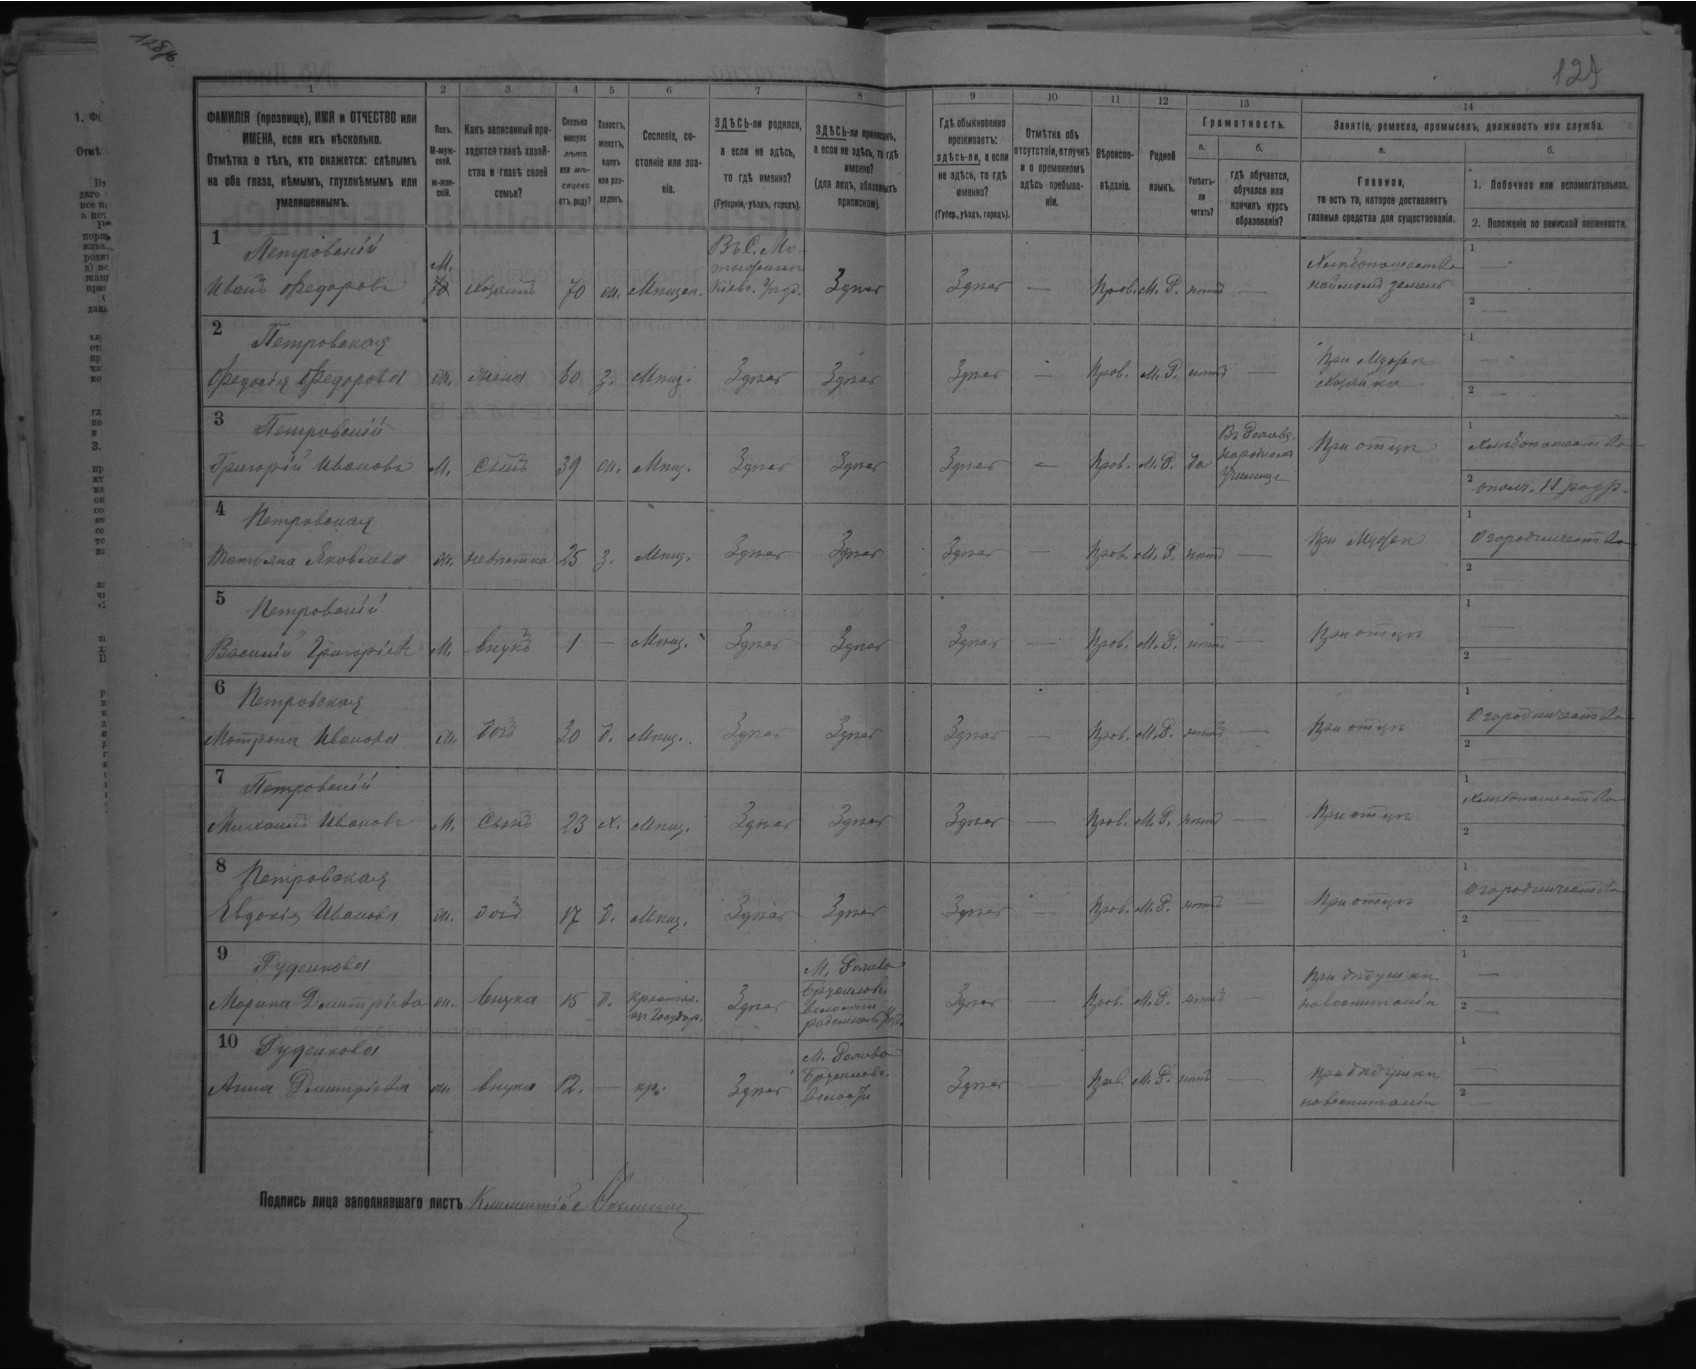 128об
129
1 2 3 4 5 6 7 8 9 10 11 12 13 14
ФАМИЛІЯ (прозвище), ИМЯ и ОТЧЕСТВО или
ИМЕНА, если ихъ нѣсколько.
Отмѣтка о тѣхъ, кто окажется: слѣпымъ
на оба глаза, нѣмымъ, глухонѣмымъ или
умалишеннымъ.
Полъ.
М-муж-
ской.
ж-жен-
скій.
Какъ записанный при-
ходится главѣ хозяй-
ства и главѣ своей
семьи?
Сколько
минуло
лѣтъ
или мѣ-
сяцевъ
отъ роду?
Холостъ,
женатъ,
вдовъ
или раз-
веденъ.
Сословіе, со-
стояніе или зва-
ніе.
ЗДѢСЬ-ли родился,
а если не здѣсь,
то гдѣ именно?
(Губернія, уѣздъ, городъ).
ЗДѢСЬ-ли приписанъ,
а если не здѣсь, то гдѣ
именно?
(для лицъ, обязанныхъ
припискою).
Гдѣ обыкновенно
проживаетъ:
здѣсь-ли, а если
не здѣсь, то гдѣ
именно?
(Губер., уѣздъ, городъ).
Отмѣтка объ
отсутствіи, отлучкѣ
и о временномъ
здѣсь пребыва-
ніи.
Вѣроиспо-
вѣданіе.
Родной
языкъ.
Грамотность.
а.
Умѣетъ-
ли
читать?
б.
гдѣ обучается,
обучался или
кончилъ курсъ
образованія?
Занятіе, ремесло, промыселъ, должность или служба.
а.
Главное,
то есть то, которое доставляетъ
главныя средства для существованія.
б.
1. Побочное или вспомогательное.
2. Положеніе по воинской повинности.
1 Петровскій
Иванъ Федоровъ М. хозяинъ 70 ж. Мѣщан. Здѣсь Здѣсь — Прав. М. Р. нѣтъ —
Хлѣбопашество
2 Петровская
Федосія Федорова ж. жена 60 з. Мѣщ. Здѣсь Здѣсь Здѣсь — Прав. М. Р. нѣтъ — При Мужѣ
хозяйка
3 Петровскій
Григорій Ивановъ М. сынъ 39 ж. Мѣщ. Здѣсь Здѣсь Здѣсь — Прав. М. Р. да
народномъ
Училище
При отцѣ Хлѣбопашество
ополч. II разр.
4 Петровская
Татьяна Яковлева ж. невѣстка 25 з. Мѣщ. Здѣсь Здѣсь Здѣсь — Прав. М. Р. нѣтъ — При Мужѣ Огородничество
5 Петровскій
Василій Григорьевъ М. внукъ 1 — Мѣщ. Здѣсь Здѣсь Здѣсь — Прав. М. Р. нѣтъ — При отцѣ —
6 Петровская
Мотрона Иванова ж. дочь 30 д. Мѣщ. Здѣсь Здѣсь Здѣсь — Прав. М. Р. нѣтъ — При отцѣ Огородничество
7 Петровскій
Михаилъ Ивановъ М. сынъ 23 х. Мѣщ. Здѣсь Здѣсь Здѣсь — Прав. М. Р. нѣтъ — При отцѣ Хлѣбопашество
8 Петровская
Евдокія Иванова ж. дочь 17 д. Мѣщ. Здѣсь Здѣсь Здѣсь — Прав. М. Р. нѣтъ — При отцѣ Огородничество
9 Гуденкова
Марина Дмитріева ж. внука 15 д. Здѣсь
Брусилов.
волости
Здѣсь — Прав. М. Р. нѣтъ — При дѣдушкѣ
на воспитаніи
10 Гуденкова
Анна Дмитріева ж. внука 12. — кр. Здѣсь
Брусилов.
Здѣсь — Прав. М. Р. нѣтъ — При дѣдушкѣ
на воспитаніи
Подпись лица заполнявшаго листъ